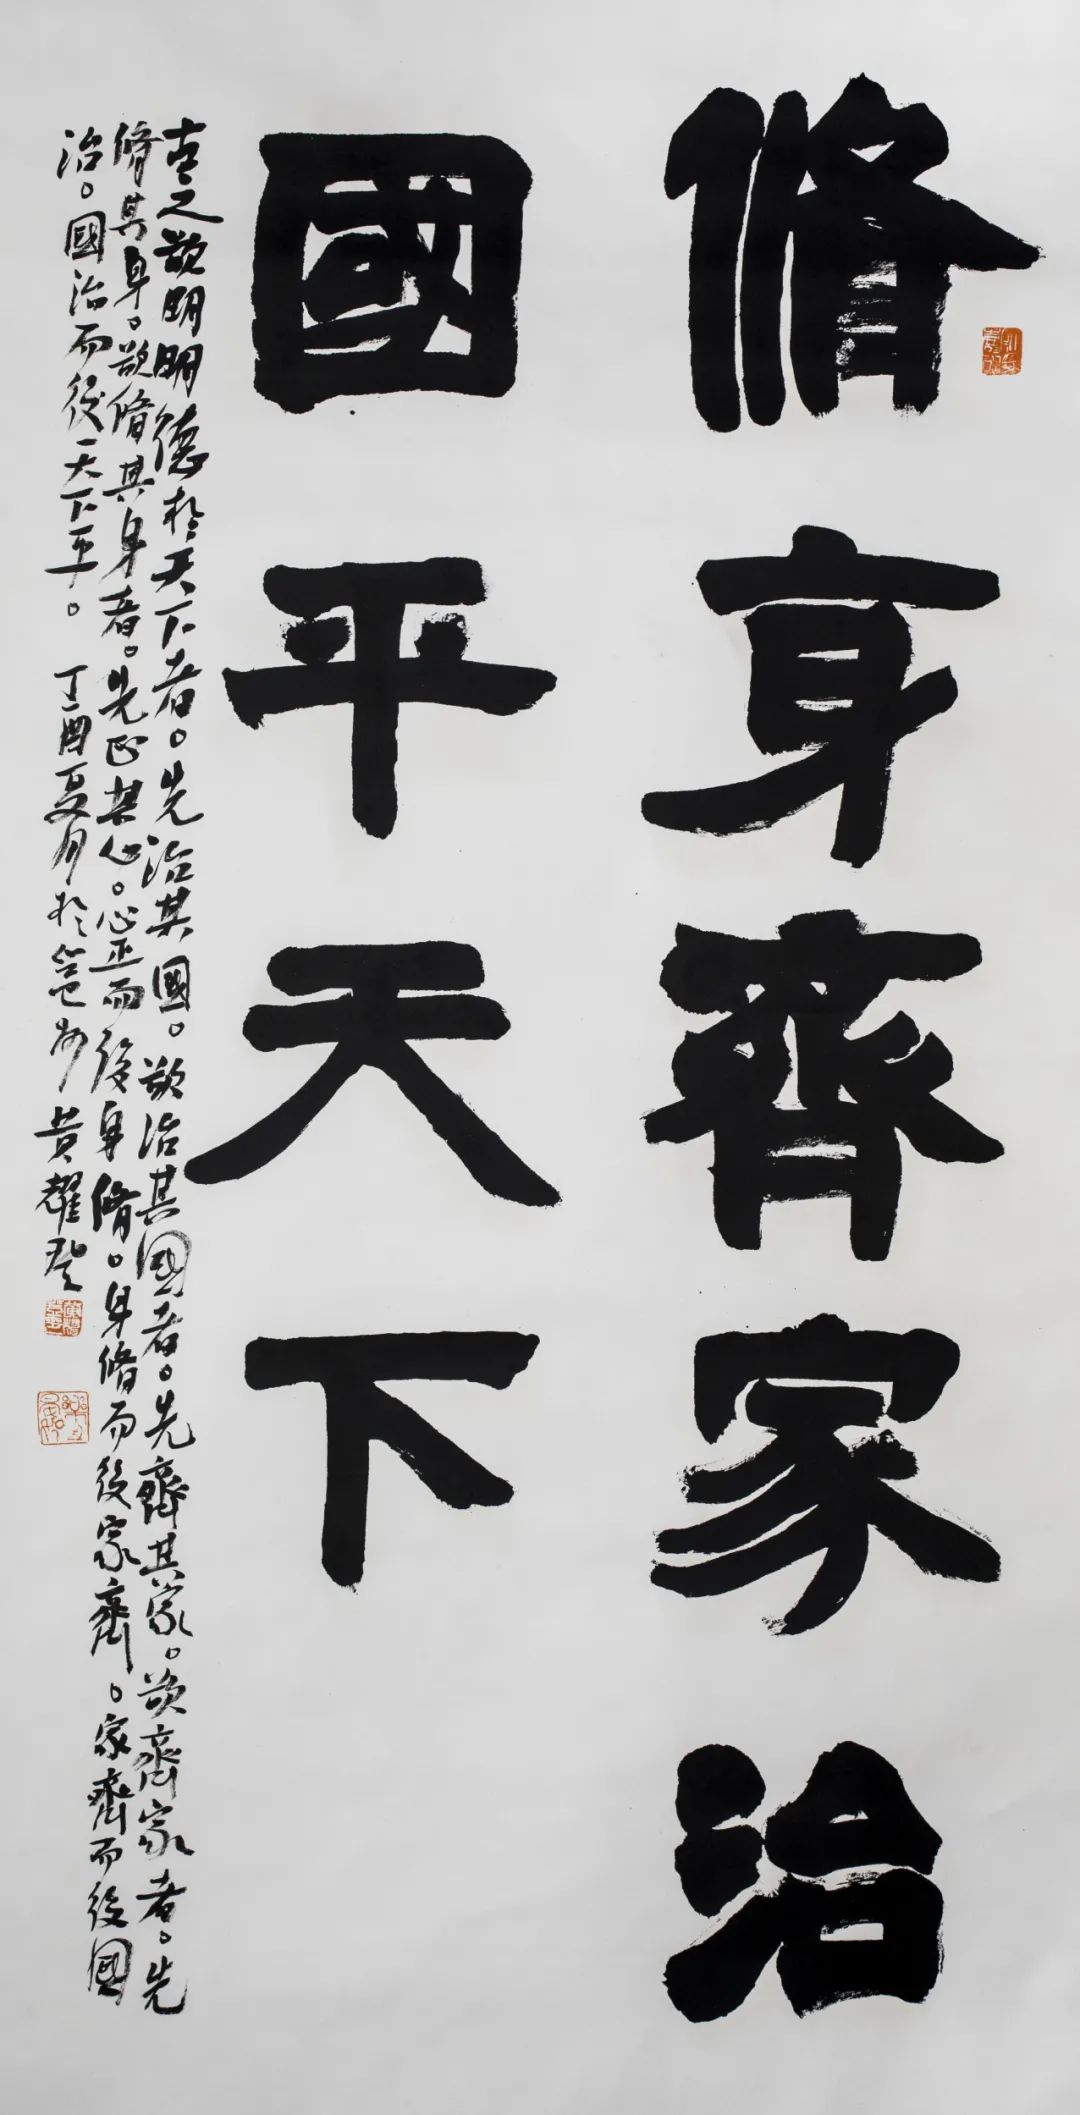 脩身齊家治
國平天下
古之欲明明德於天下者。先治其國。欲治其國者。先齊其家。欲齊家者。先
脩其身。欲脩其身者。先正其心。心正而後身脩。身脩而後家齊。家齊而後國
治。國治而後天下平。丁酉夏月於邕州黄耀